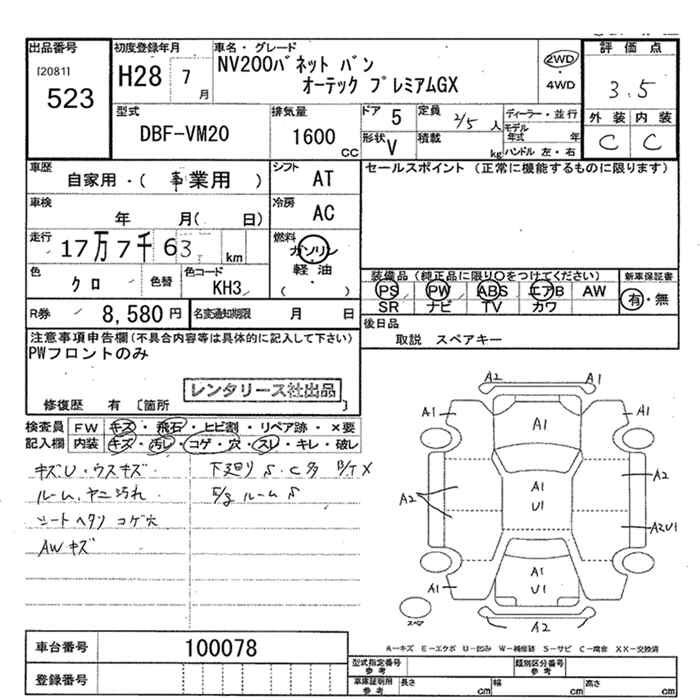 出品番号
[2081]
523
初度登録年月
H28 7 月
車名・グレード
NV200バネット バン
オーテック プレミアムGX
2WD
・
4WD
評価点
3.5
外装 内装
C C
型式
DBF-VM20
排気量
1600 CC
ドア 5
形状 V
定員 2/5 人
積載 kg
ディーラー・並行
モデル年式 年
ハンドル 左・右
車歴
自家用・( 事業用 )
シフト
AT
セールスポイント (正常に機能するものに限ります)
車検
年 月( 日)
冷房
AC
走行
17万7千63 km
燃料
ガソリン
・
軽油
( )
色
クロ
色替
色コード
KH3
装備品 (純正品に限り○をつけてください)
PS PW ABS エアB AW
SR ナビ TV カワ
新車保証書
有・無
R券 8,580 円
名変通知期限 月 日
後日品
取説 スペアキー
注意事項申告欄(不具合内容等は具体的に記入して下さい)
PWフロントのみ
レンタリース社出品
修復歴 有 〔箇所 〕
検査員記入欄
FW キズ・飛石・ヒビ割・リペア跡・×要
内装 キズ・汚レ・コゲ・穴・スレ・キレ・破レ
キズU・ウスキズ
ルーム、ヤニ汚れ
シートヘタリ コゲ穴
AWキズ
下廻り S・C多
ルームS
A2 A1
A1 A1 A1
A2 A1 U1 A2
A2U1
A1 A1 U1 A1
スペア
A2
A-キズ E-エクボ U-凹み W-補修跡 S-サビ C-腐食 XX-交換済
車台番号 100078
登録番号
型式指定番号 参考
類別区分番号 参考
車庫証明用 参考
長さ cm
幅 cm
高さ cm